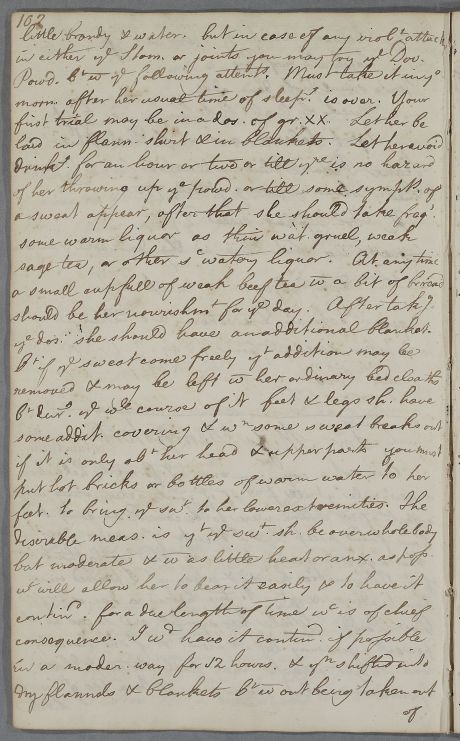 102
little brandy & water. but in case of any viol.t attack
in either ye Stom. or joints you may try ye Dov.
Powd. bt w ye following attent.s Must take it in ye
morn. after her usual time of sleep.g is over. Your
first trial may be in a dos. of gr. XX. Let her be
laid in flann. shirt & in blankets. Let her avoid
drink.g for an hour or two or till yre is no hazard
of her throwing up ye powd. or till some sympt.s of
a sweat appear, after that she should take freq.
some warm liquor as thin wat. gruel, weak
sage tea, or other sc watery liquor. At any time
a small cupfull of weak beef tea w a bit of bread
should be her nourishmt for ye day. After tak.g
ye dos. she should have an additional blanket.
bt if ye sweat come freely yt addition may be
removed & may be left w her ordinary bed cloaths
bt dur.g ye wle course of it feet & legs sh. have
some addit. covering & wn some sweat breaks out
if it is only abt her head & upper parts you must
put hot bricks or bottles of warm water to her
feet. to bring ye swt to her lower extremities. The
desirable meas. is yt ye swt sh. be over whole body
but moderate & w as little heat or anx. as poss.
wc will allow her to bear it easily & to have it
contin.d for a due length of time wc is of chief
consequence. I wd have it contin.d if possible
in a moder. way for 12 hours. & yn shifted into
dry flannels & blankets bt w out being taken out
of